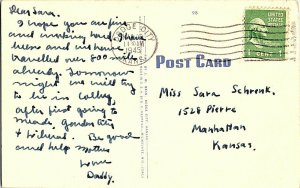 Dear Sara.
I hope you are fine
and working hard. I have
been and
travelled over 800
already. Tomorrow
night we will try
to be in Colby,
after first going to
Meade, Garden City
+ Liberal. Be good
and help mother
Love
Daddy.
DODGE CITY
1945
KANS.
UNITED STATES
1 CENT 1
POST CARD
Miss Sara Schrenk.
1528 Pierre
Manhattan
Kansas.